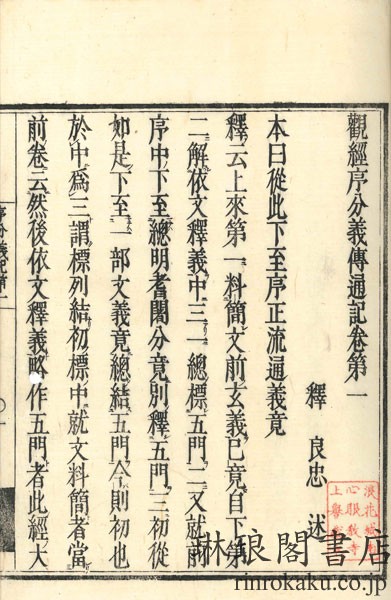 觀經序分義傳通記卷第一
釋 良忠 述
本曰從此下至序正流通義竟
釋云上來第一料簡文前玄義已竟自下第
二解依文釋義中三一總標五門二又就前
序中下至總明耆闍分竟別釋五門三從
如是下至一部文義竟總結五門今則初也
於中爲三謂標列結初標中就文料簡者當
前卷云然後依文釋義略作五門者此經大
琳琅閣書店
rinrokaku.co.jp